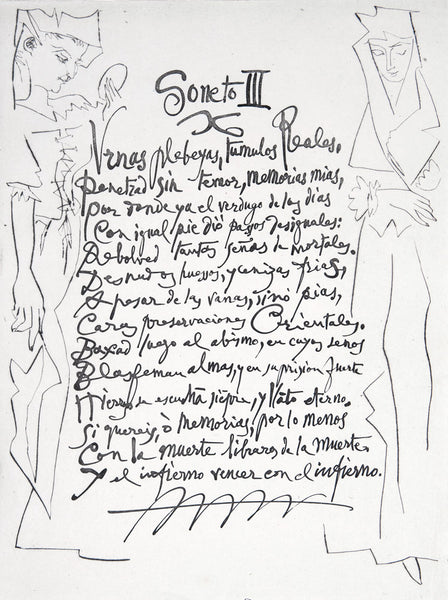 Soneto III
Vrnas plebeyas, tumulos Reales,
Penetrad sin temor, memorias mias,
Por donde ya el verdugo de los dias
Con igual pie diò pasos desiguales:
Rebolved tantas señas de mortales.
Desnudos huesos, y cenizas frias,
A pesar de las vanas, sinò pias,
Caras preservaciones Orientales.
Baxad luego al abismo, en cuyos senos
Blasfeman almas, y en su prision fuerte
Hierros se escuchã siẽpre, y llãto eterno.
Si quereis, ò memorias, por lo menos
Con la muerte libraros de la Muerte.
Y el infierno vencer con el infierno.